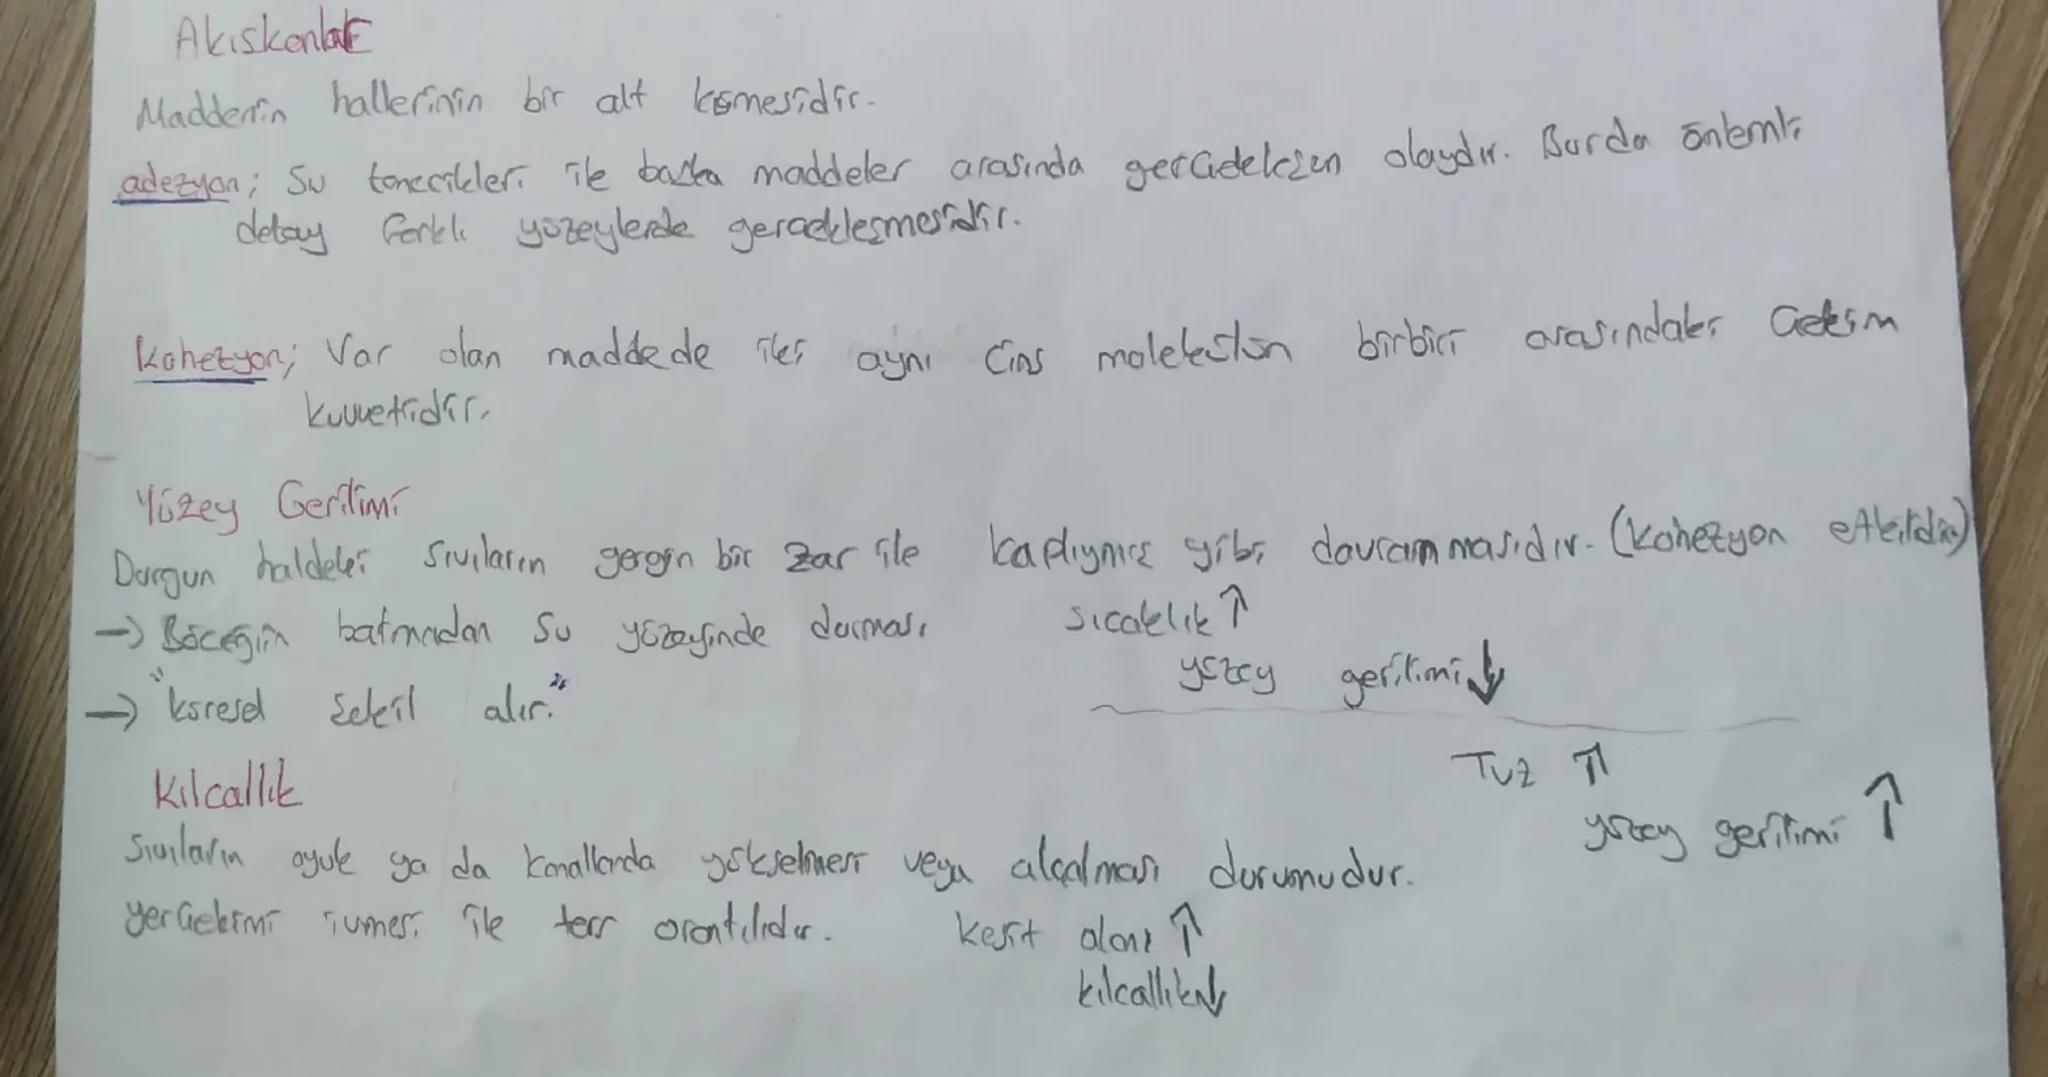 Akışkanlar
Maddenin hallerinin bir alt kümesidir.
adezyon; Su tanecikleri ile başka maddeler arasında gerçekleşen olaydır. Burda önemli
detay farklı yüzeylerde gerçekleşmesidir.
Kohezyon; Var olan maddede iki aynı cins molekülün birbiri arasındaki çekim
kuvvetidir.
Yüzey Gerilimi
Durgun haldeki sıvıların gergin bir zar ile kaplıymış gibi davranmasıdır. (kohezyon etkilidir)
→ Böceğin batmadan su yüzeyinde durması sıcaklık ↑
yüzey gerilimi ↓
→ "küresel şekil alır."
Tuz ↑
yüzey gerilimi ↑
Kılcallık
Sıvıların oyuk ya da kanallarda yükselmesi veya alçalması durumudur.
yerçekimi ivmesi ile ters orantılıdır. kesit alanı ↑
kılcallık ↓